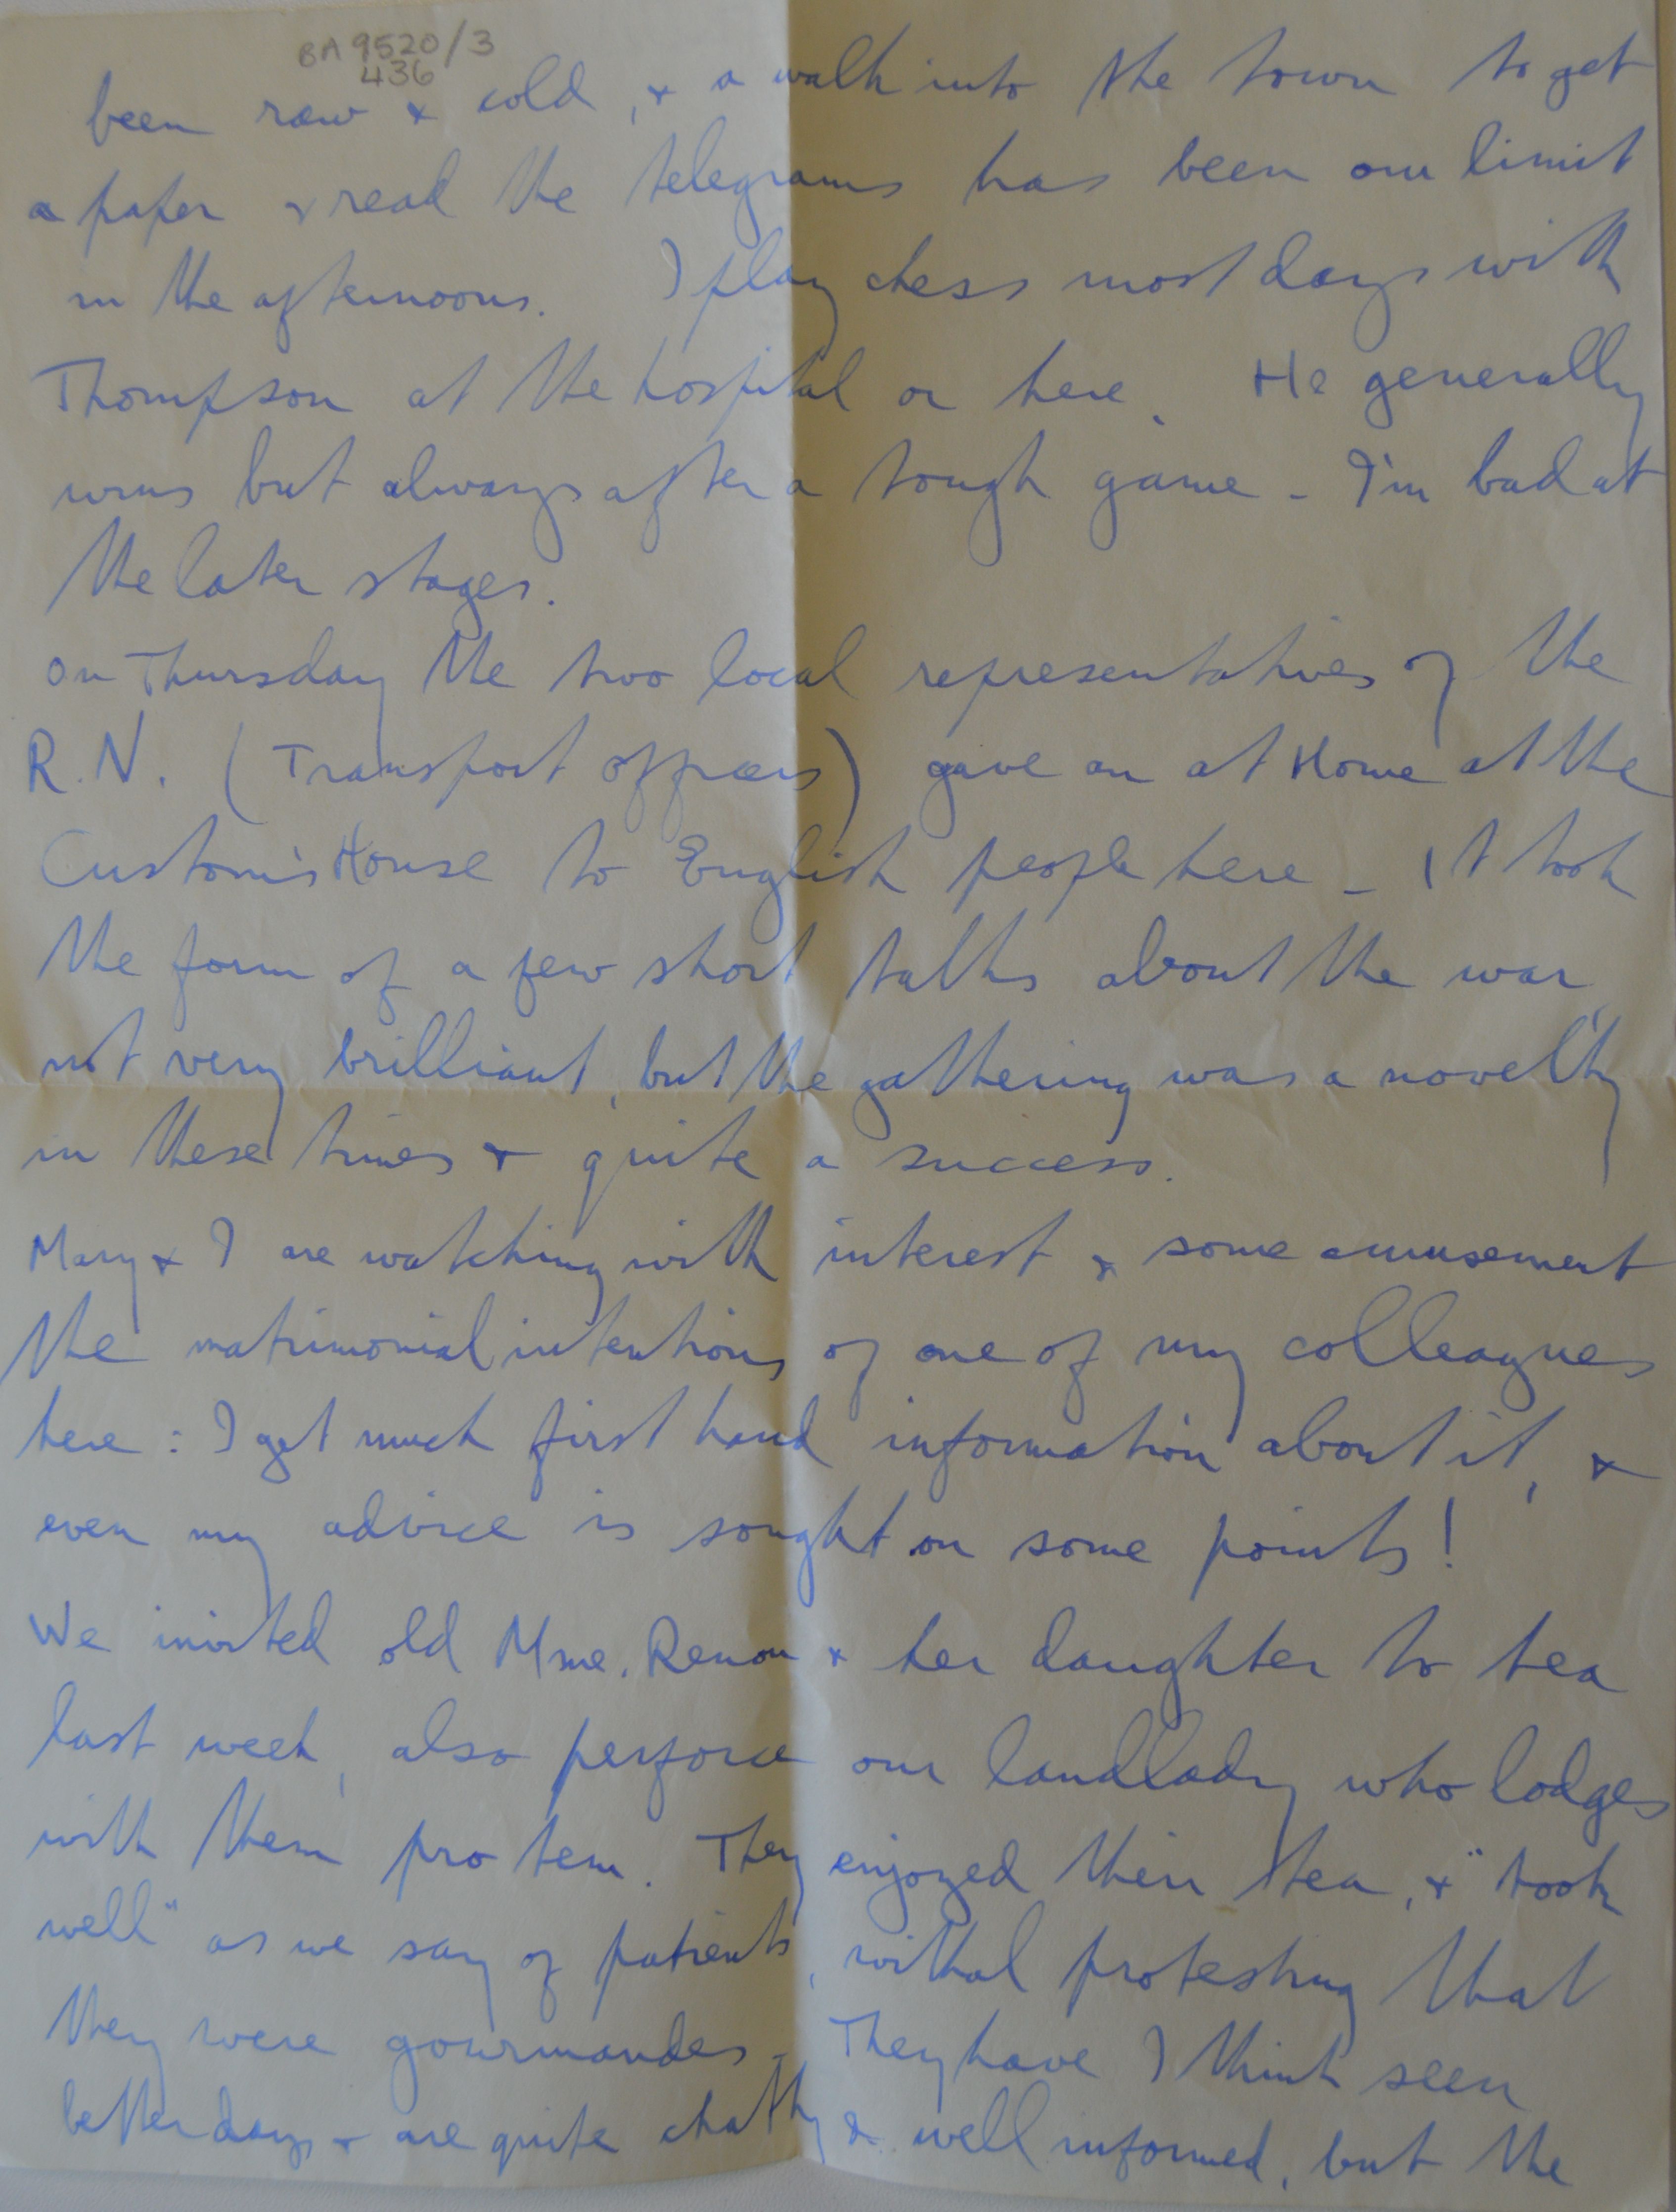 BA 9520/3
436
been raw & cold, & a walk into the town to get
a paper & read the telegrams has been our limit
in the afternoons. I play chess most days with
Thompson at the hospital or here. He generally
wins but always after a tough game - I'm bad at
the later stages.
On Thursday the two local representatives of the
R.N. (Transport officers) gave an at Home at the
Custom's House to English people here - It took
the form of a few short talks about the war,
not very brilliant, but the gathering was a novelty
in these times & quite a success.
Mary & I are watching with interest & some amusement
the matrimonial intentions of one of my colleagues
here : I get much first hand information about it, &
even my advice is sought on some points!
We invited old Mme. Renou & her daughter to tea
last week, also perforce our landlady who lodges
with them pro tem. They enjoyed their tea, & "took
well" as we say of patients, withal protesting that
they were gourmandes - They have I think seen
better days & are quite chatty & well informed, but the